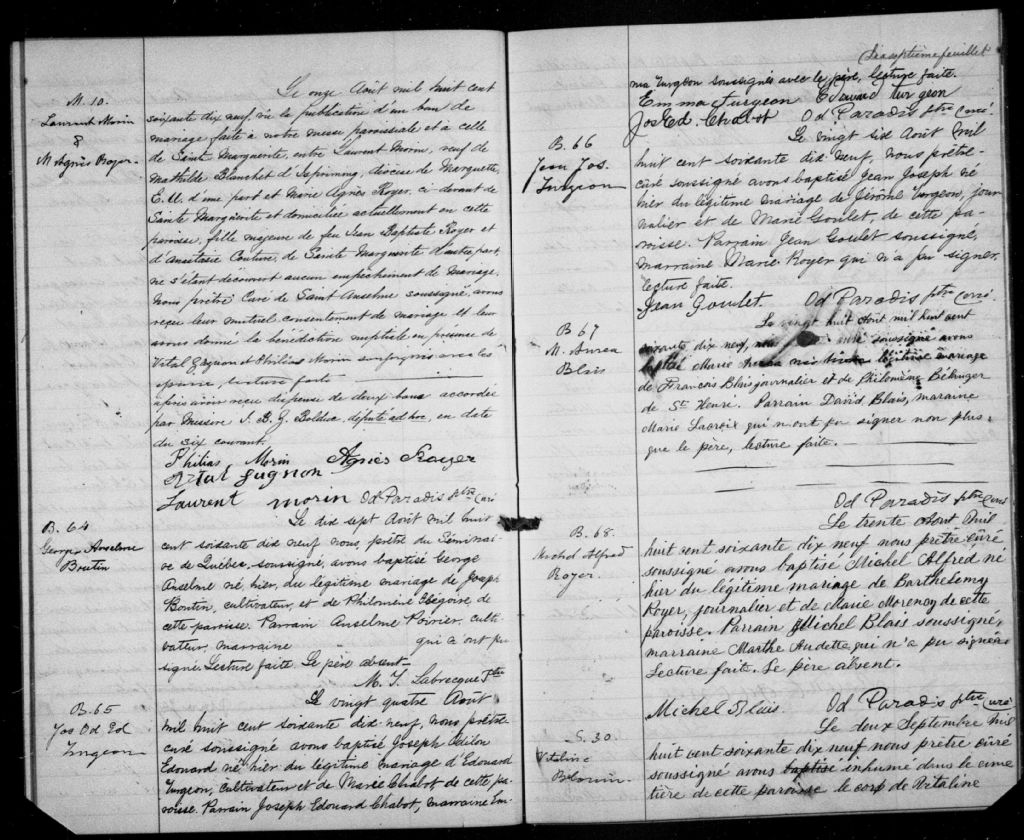 M. 10.
Laurent Morin
&
M. Agnès Royer
Le onze Août mil huit cent
soixante dix neuf, vu la publication d'un ban de
mariage faite à notre messe paroissiale et à celle
de Sainte Marguerite, entre Laurent Morin, veuf de
Mathilde Blanchet d'Ispiming, diocèse de Marquette,
E. U. d'une part et Marie Agnès Royer, ci devant de
Sainte Marguerite et domiciliée actuellement en cette
paroisse, fille majeure de feu Jean Baptiste Royer et
d'Anastasie Couture, de Sainte Marguerite d'autre part,
ne s'étant découvert aucun empêchement de mariage,
Nous prêtre Curé de Saint Anselme soussigné, avons
reçu leur mutuel consentement de mariage et leur
avons donné la bénédiction nuptiale en présence de
Vital Gagnon et Philias Morin soussignés avec les
époux, lecture faite
après avoir reçu dispense de deux bans accordée
par Messire J. B. Z. Bolduc, député ad hoc, en date
du six courant.
Philias Morin Agnès Royer
Vital Gagnon
Laurent Morin Od Paradis ptre Curé
B. 64
George Anselme
Boutin
Le dix sept Août mil huit
cent soixante dix neuf nous, prêtre du Séminai-
re de Québec, soussigné, avons baptisé George
Anselme né hier, du légitime mariage de Joseph
Boutin, cultivateur, et de Philomène Grégoire, de
cette paroisse. Parrain Anselme Poirier, culti-
vateur, marraine qui n'ont pu
signé. Lecture faite. Le père absent.
M. T. Labrecque Ptre
B. 65
Jos Od Ed
Turgeon
Le vingt quatre Août
mil huit cent soixante dix neuf, nous prêtre-
curé soussigné avons baptisé Joseph Odilon
Edouard né hier du légitime mariage d'Edouard
Turgeon, cultivateur et de Marie Chabot de cette pa-
roisse. Parrain Joseph Edouard Chabot, marraine Em-
septième feuillet
ma Turgeon soussignés avec le père, lecture faite.
Emma Turgeon Edouard Turgeon
Jos Ed. Chabot Od Paradis ptre Curé.
B. 66
Jean Jos.
Turgeon
Le vingt six Août mil
huit cent soixante dix neuf, nous prêtre-
curé soussigné avons baptisé Jean Joseph né
hier du légitime mariage de Jérôme Turgeon, jour-
nalier et de Marie Goulet, de cette pa-
roisse. Parrain Jean Goulet soussigné,
marraine Marie Royer qui n'a pu signer,
lecture faite.
Jean Goulet. Od Paradis ptre Curé.
B 67
M. Aurea
Blais
Le vingt huit Août mil huit cent
soixante dix neuf, curé soussigné avons
baptisé Marie légitime mariage
de François Blais journalier et de Philomène
de St Henri. Parrain David Blais, maraine
Marie Lacroix qui n'ont pu signer non plus
que le père, lecture faite.
Od Paradis ptre Curé
B. 68.
Michel Alfred
Royer
Le trente Août mil
huit cent soixante dix neuf nous prêtre curé
soussigné avons baptisé Michel Alfred, né
hier du légitime mariage de Barthelemy
Royer, journalier et de Marie Morency de cette
paroisse. Parrain Michel Blais soussigné,
marraine Marthe Audette qui n'a pu signer.
Lecture faite. Le père absent.
Michel Blais Od Paradis ptre curé
S. 30
Vitaline
Le deux Septembre mil
huit cent soixante dix neuf nous prêtre curé
soussigné avons baptisé inhumé dans le cime
tière de cette paroisse le corp de Vitaline